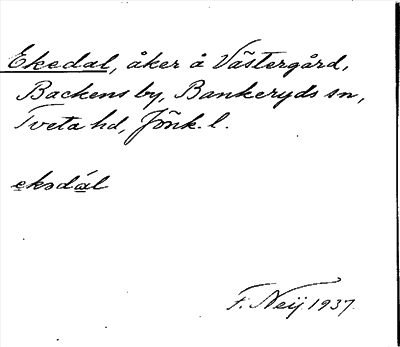 Ekedal, åker å Västergård,
Backens by, Bankeryds sn,
Tveta hd, Jönk. l.
eksdál
F. Neij. 1937.